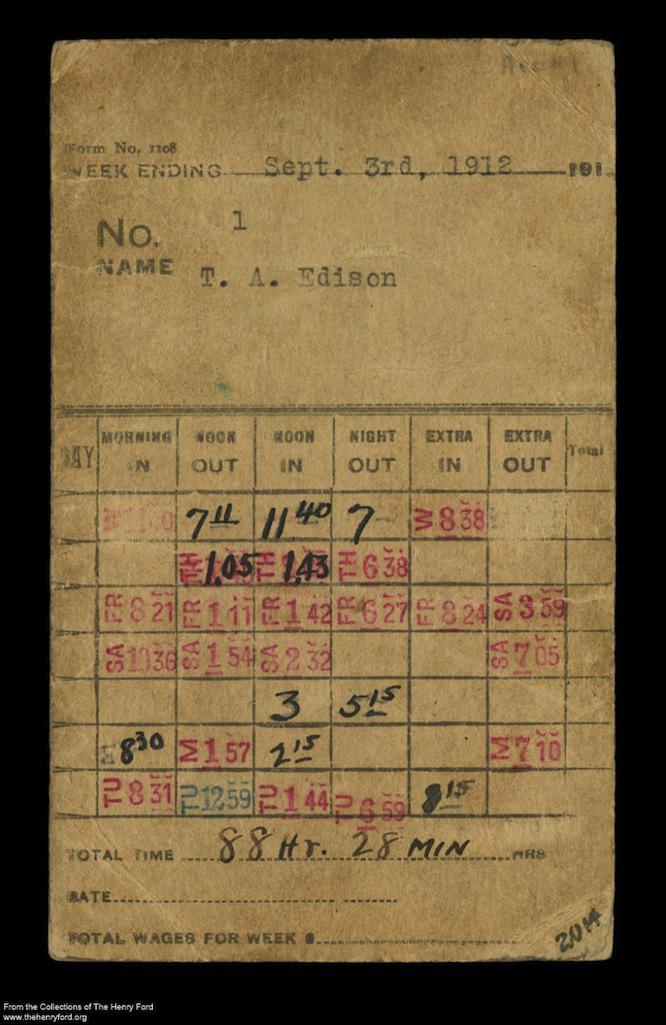 Form No. 1108
WEEK ENDING Sept. 3rd, 1912 191
No. 1
NAME T. A. Edison
DAY MORNING IN NOON OUT NOON IN NIGHT OUT EXTRA IN EXTRA OUT Total
7 11 11 40 7 W 8 38
TH 1.05 TH 1.43 TH 6 38
FR 8 21 FR 1 11 FR 1 42 FR 6 27 FR 8 24 SA 3 59
SA 10 36 SA 1 54 SA 2 32 SA 7 05
3 5 15
8 30 M 1 57 2 15 M 7 10
TU 8 31 TU 12 59 TU 1 44 TU 6 59 8 15
TOTAL TIME 88 Hr. 28 MIN HRS
RATE
TOTAL WAGES FOR WEEK $
2014
From the Collections of The Henry Ford
www.thehenryford.org